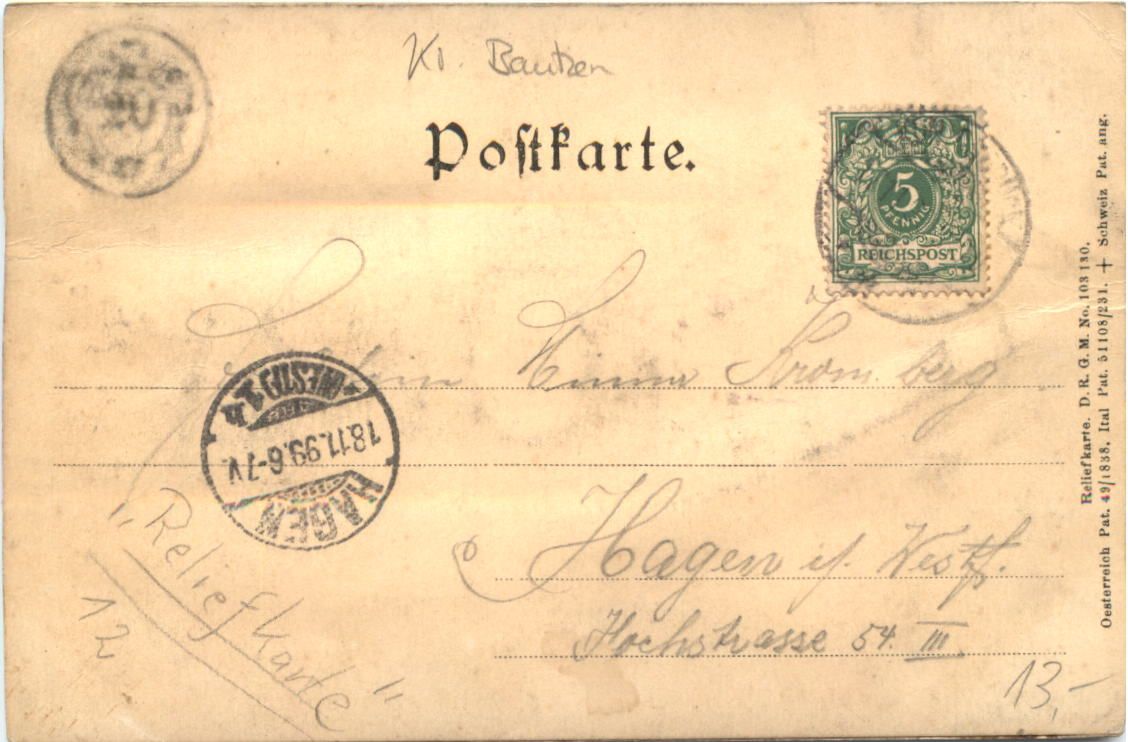 Kr. Bautzen
Postkarte.
5
PFENNIG
REICHSPOST
Emma Kromberg
HAGEN
18.11.99.6-7V.
(WESTF.)
Hagen i/ Westf.
Hochstrasse 54. III
"Reliefkarte"
12
13,-
Reliefkarte. D. R. G. M. No. 103130.
Oesterreich Pat. 49/1838. Ital Pat. 51108/231. + Schweiz Pat. ang.